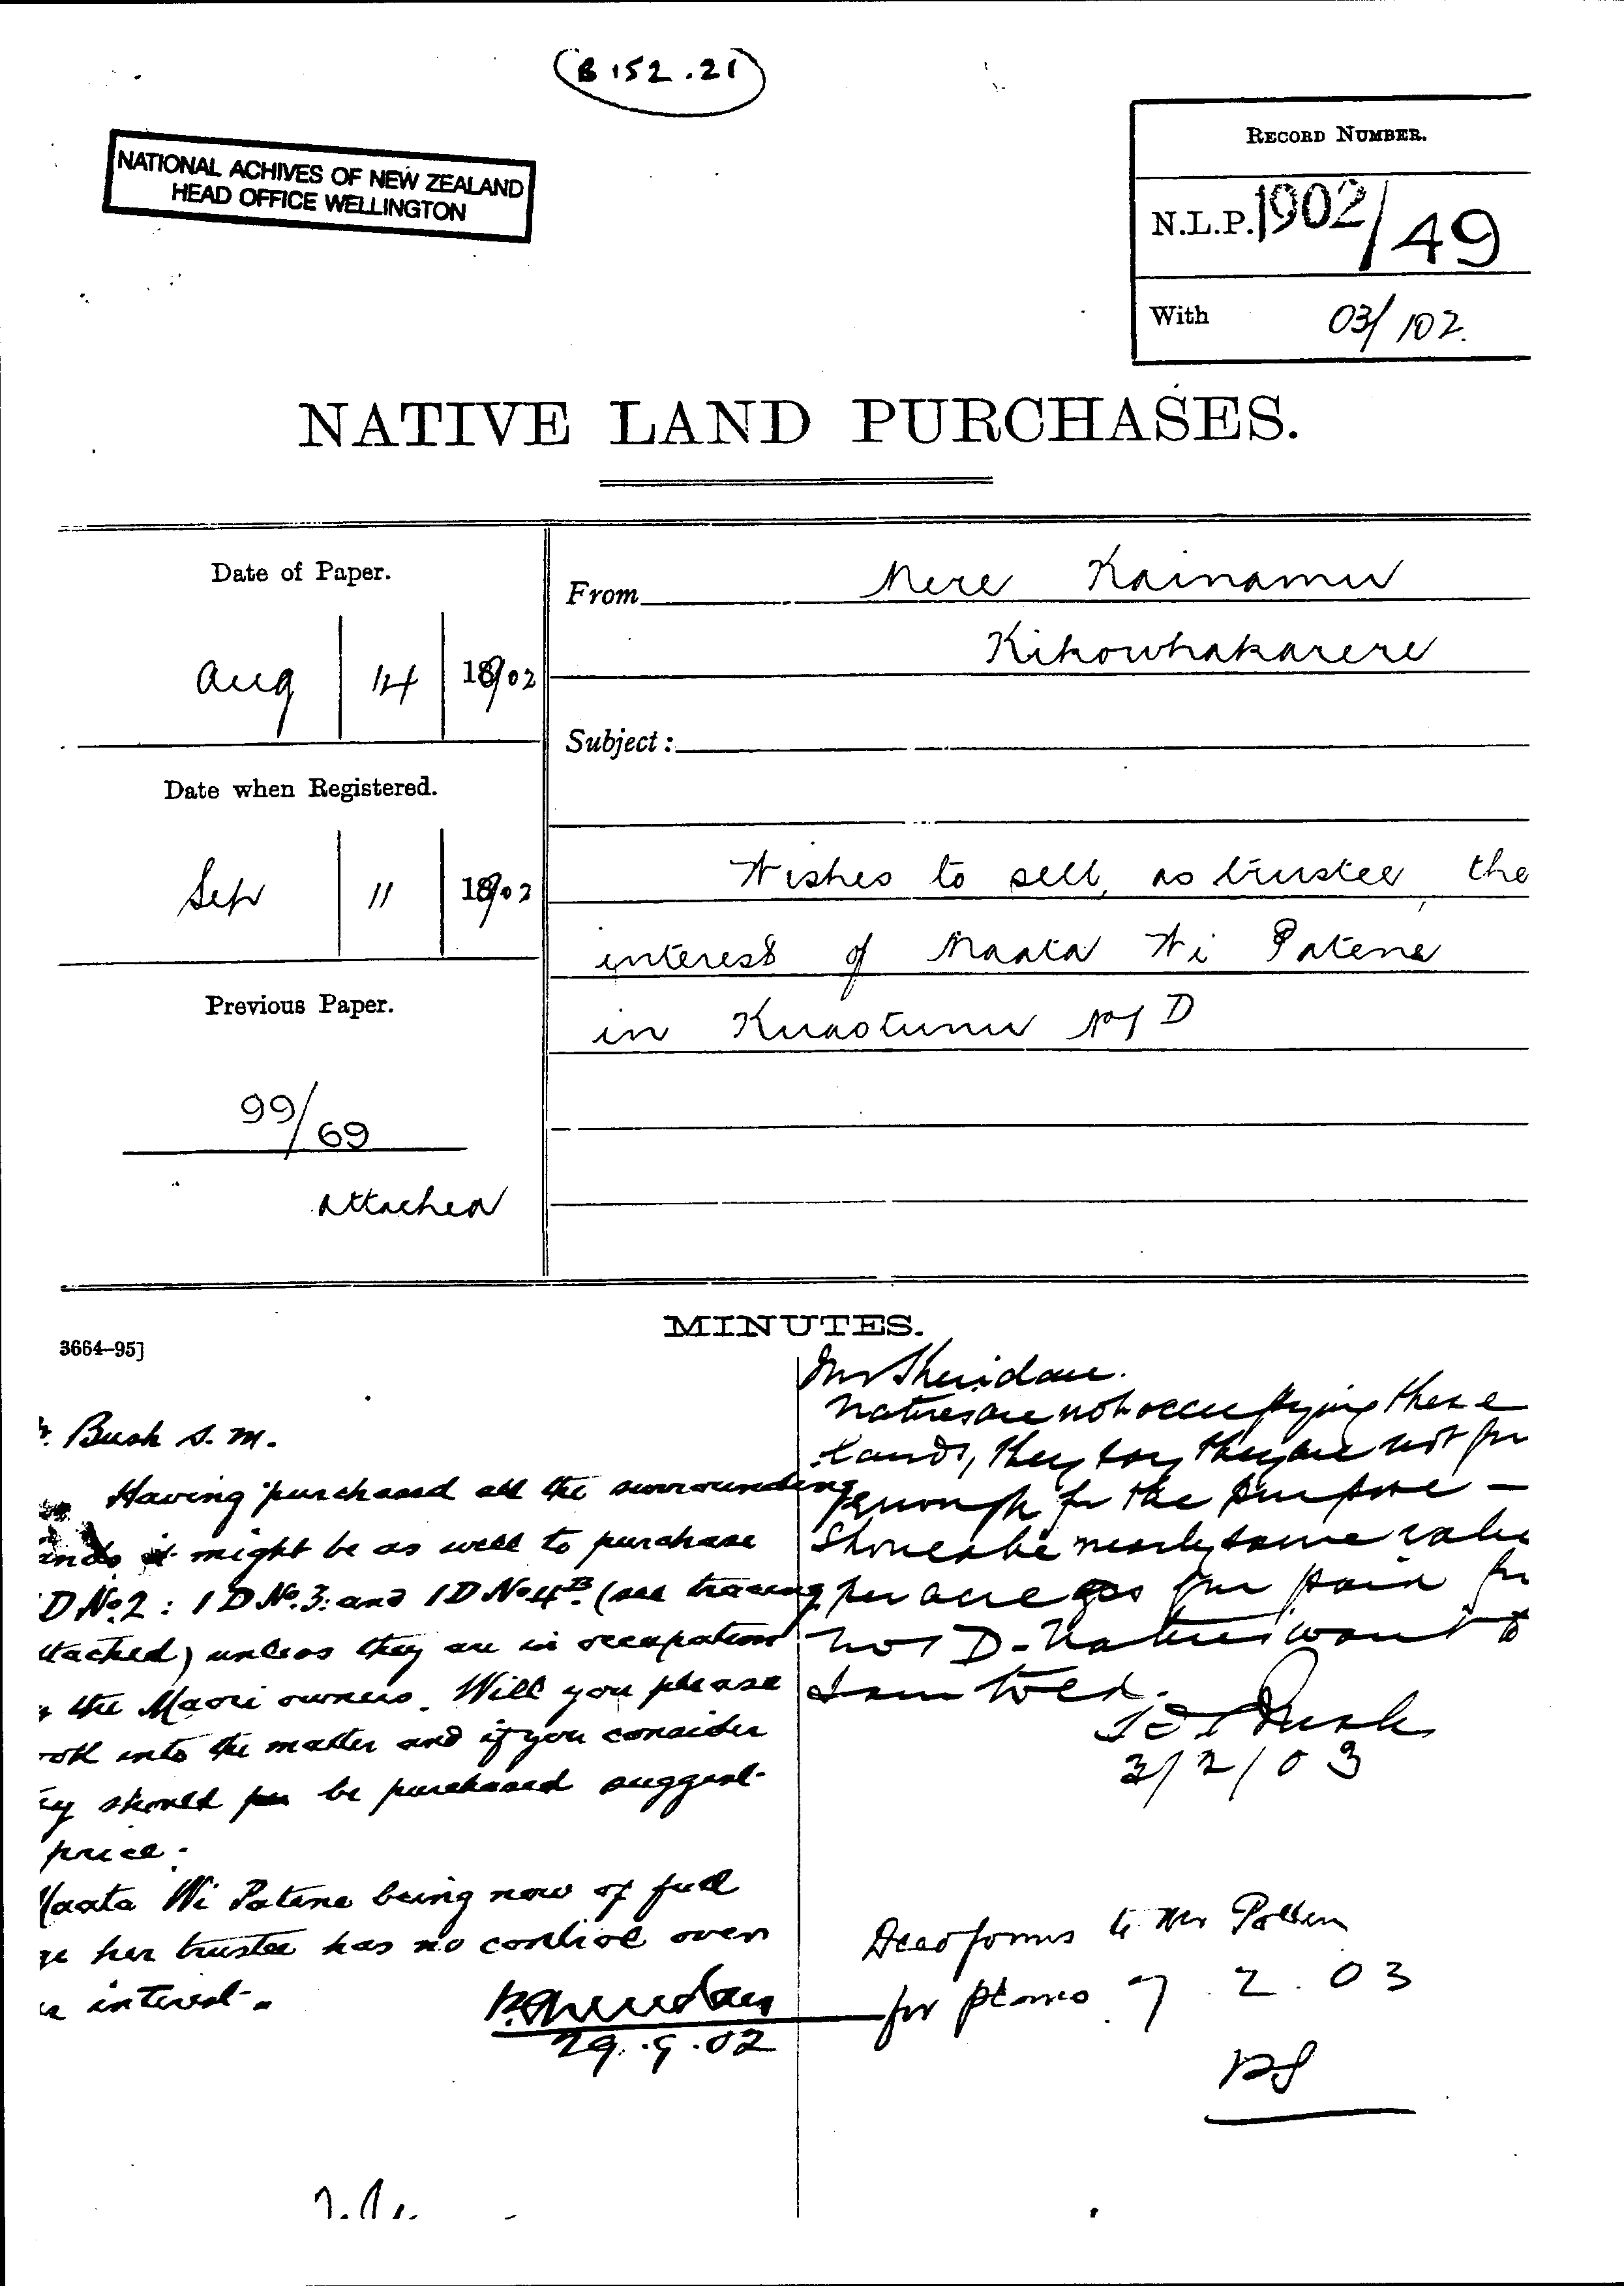 (B 152.21)
NATIONAL ACHIVES OF NEW ZEALAND
HEAD OFFICE WELLINGTON
RECORD NUMBER.
N.L.P. 1902/49
With 03/102.
NATIVE LAND PURCHASES.
Date of Paper.
Aug 14 1902
Date when Registered.
Sep 11 1902
Previous Paper.
99/69
attached
From Mere Kainamu
Kikowhakarere
Subject:
Wishes to sell, as trustee, the
interest of Maata Wi Patene
in Kuaotunu No 1 D
MINUTES.
3664-95]
Bush S.M.
Having purchased all the surrounding
it might be as well to purchase
D No. 2 : 1 D No. 3: and 1 D No 4B. (see tracing
ttached) unless they are in occupation
the Maori owners. Will you please
into the matter and if you consider
should be purchased suggest
price.
aata Wi Patene being now of full
her trustee has no control over
interest.
P. Sheridan
29.9.02
Mr Sheridan.
Natives are not occupying these
lands, they say they are not
enough for the purpose —
Should be nearly same value
per acre as paid for
No 1 D - Natives want to
I am told.
Bush
3/2/03
Deed forms to Mr
for plans 7.2.03
PS